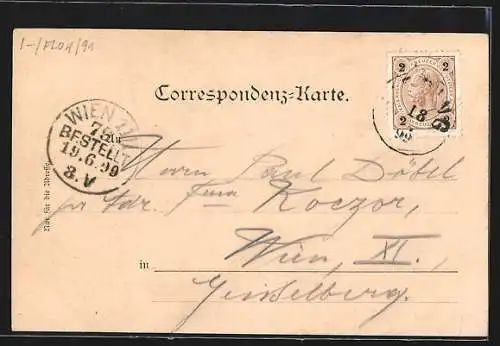 Correspondenz-Karte.
2 2
WIEN
BESTELLT
19.6.99
8.V
18
99
An
Herrn Paul Döbel
per Adr. Firma Koczor,
Wien, XI.,
in
Geiselberg.
Nur für die Adresse